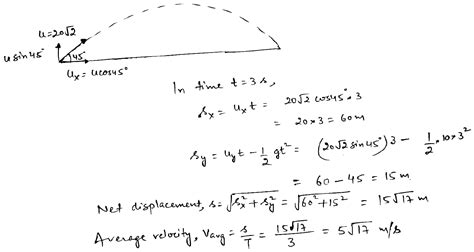 u=20√2
u sin45°
45°
uₓ = ucos45°
In time t = 3 s,
sₓ = uₓt = 20√2 cos45° × 3
= 20×3 = 60m
s_y = u_yt - 1/2 gt² = (20√2 sin45°)3 - 1/2 × 10 × 3²
= 60 - 45 = 15 m
Net displacement, s = √(sₓ² + s_y²) = √(60² + 15²) = 15√17 m
Average velocity, Vavg = s/T = 15√17/3 = 5√17 m/s